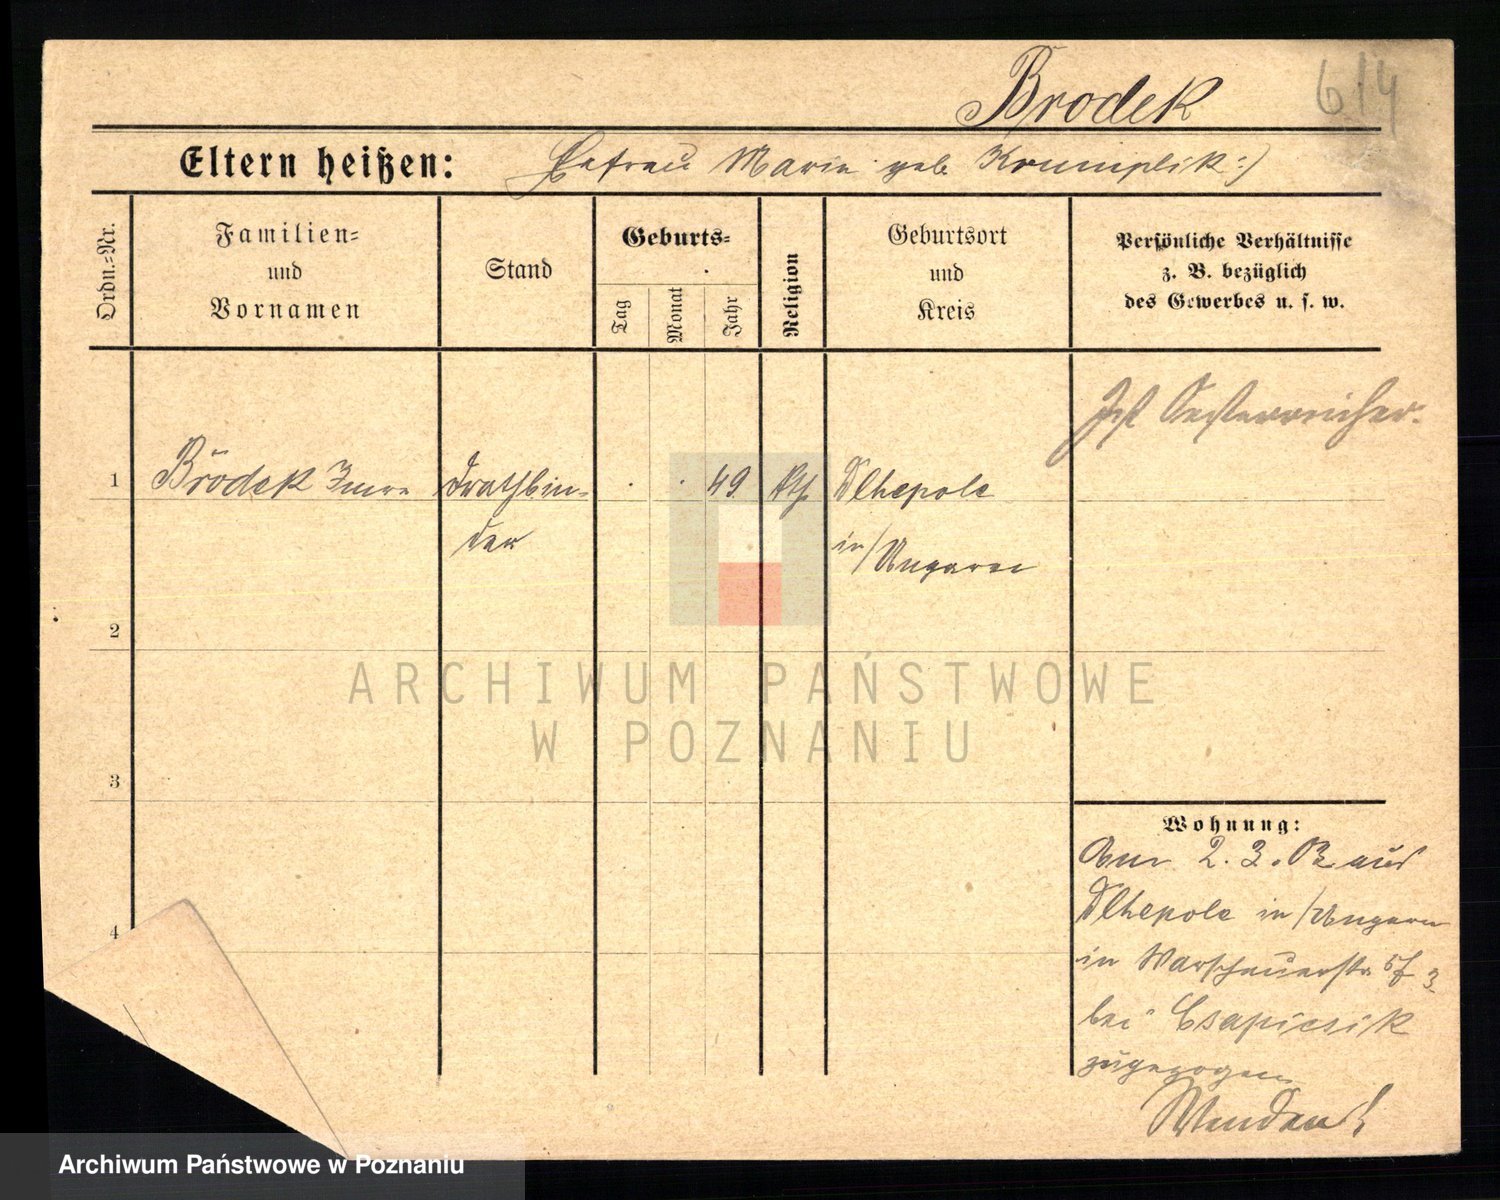 Brodek 614
Eltern heißen: Ehefrau Marie geb Krumplik :)
Ordn.-Nr.
Familien-
und
Vornamen
Stand
Geburts-
Tag
Monat
Jahr
Religion
Geburtsort
und
Kreis
Persönliche Verhältnisse
z. B. bezüglich
des Gewerbes u. s. w.
Ist Oesterreicher.
1 Brödek Imre Drathbin- 49 kth Dlhepole
der in/Ungarn
2
3
4
Wohnung:
Am 2.3.03 aus
Dlhepole in/Ungarn
in Warschauerstr 3
bei Csapicsik
zugezogen
ARCHIWUM PAŃSTWOWE
W POZNANIU
Archiwum Państwowe w Poznaniu